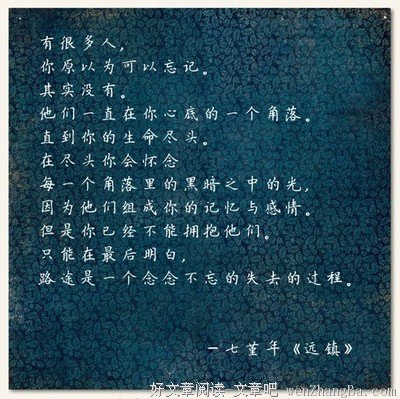 有很多人,
你原以为可以忘记。
其实没有。
他们一直在你心底的一个角落。
直到你的生命尽头。
在尽头你会怀念
每一个角落里的黑暗之中的光,
因为他们组成你的记忆与感情。
但是你已经不能拥抱他们。
只能在最后明白,
路途是一个念念不忘的失去的过程。
一七堇年《远镇》
好文章阅读-文章吧-wenZhangBa.com